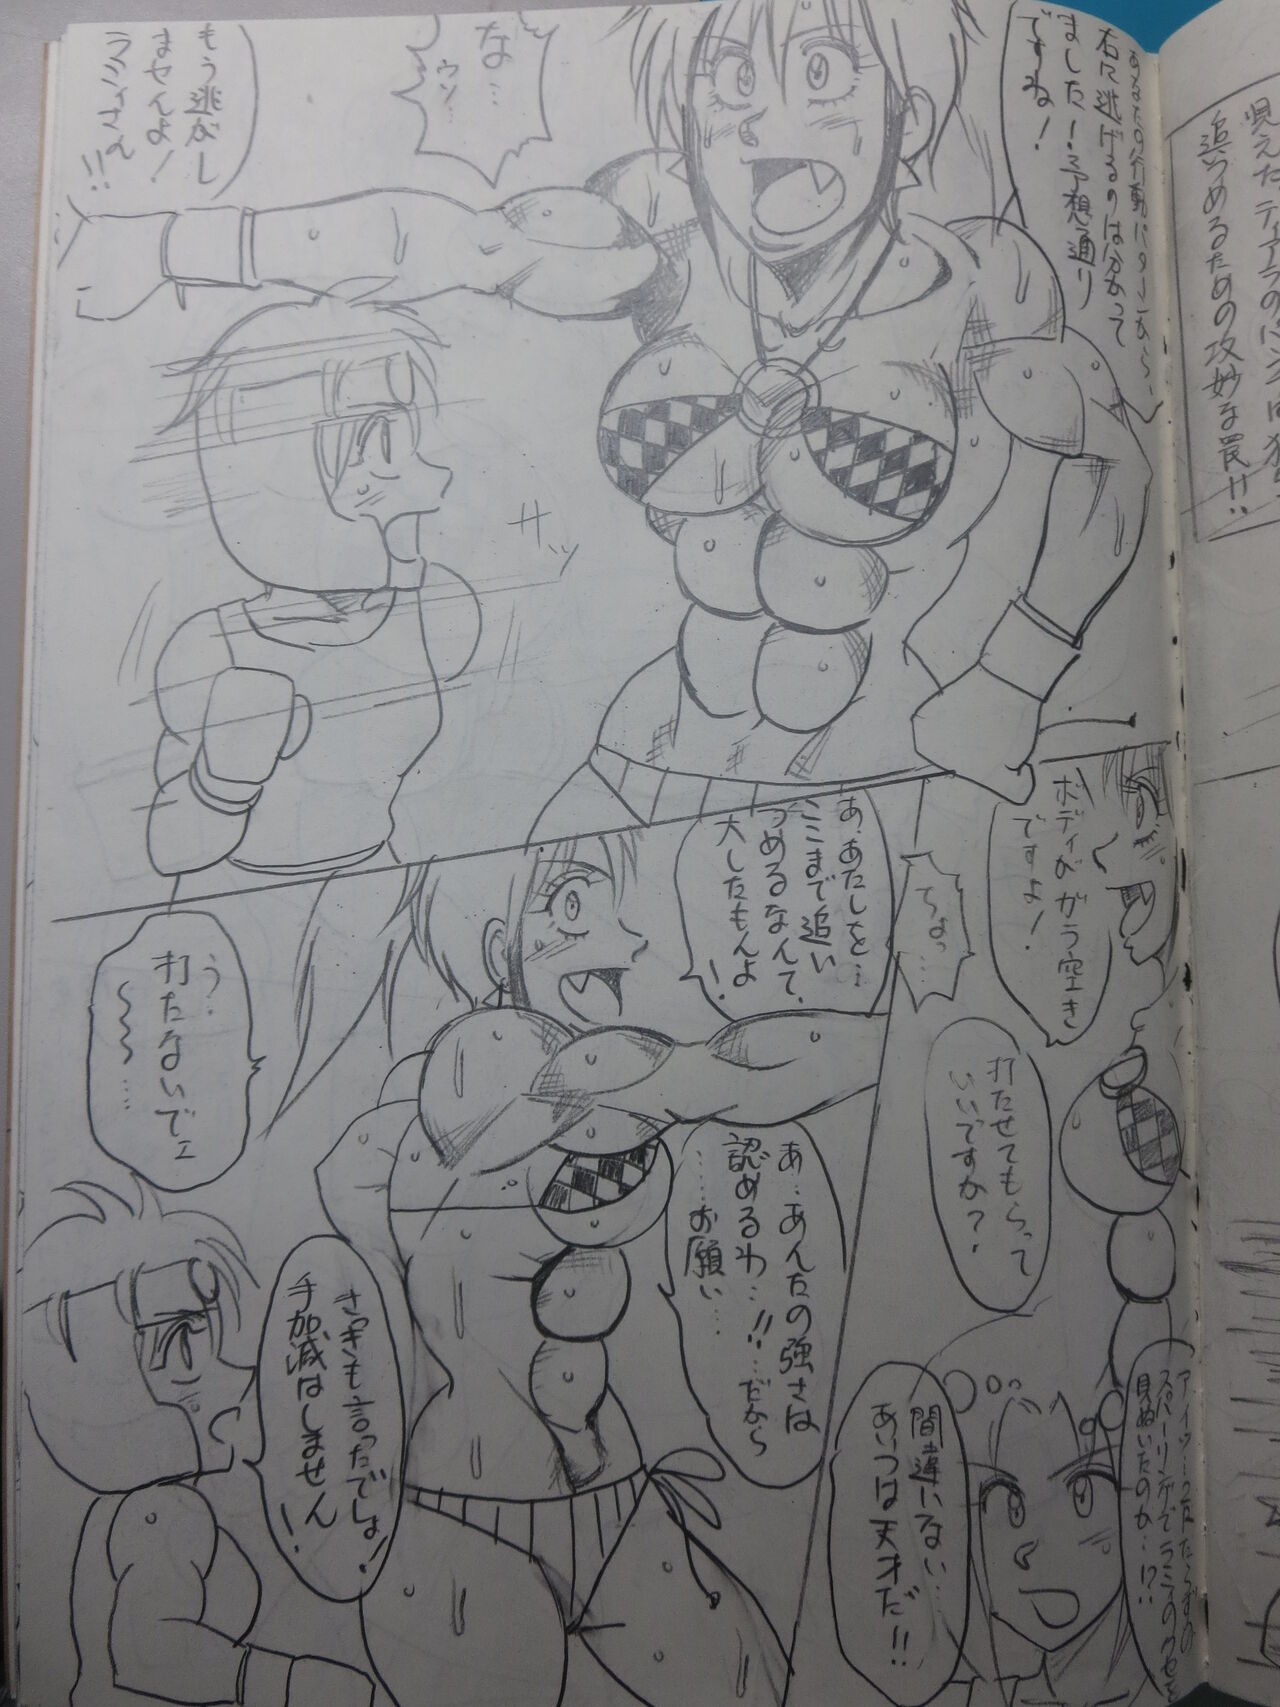 追いつめるための攻妙な罠!!
右に逃げるのは分かって
ました！予想通り
ですね！
な…
ウソ…
もう逃がし
ませんよ！
ラミィさん
!!
サッ
ボディがガラ空き
ですよ！
ちょっ…
打たせてもらって
いいですか？
あ、あたしを…
ここまで追い
つめるなんて、
大したもんよ
！
あ…あんたの強さは
認めるわ…!!…だから
……お願い……
う…
打たないでェ
〜〜〜…
さっきも言ったでしょ！
手加減はしません
！
スパーリングでラミィのクセを
見ぬいたのか…!?
間違いない……
あいつは天才だ!!